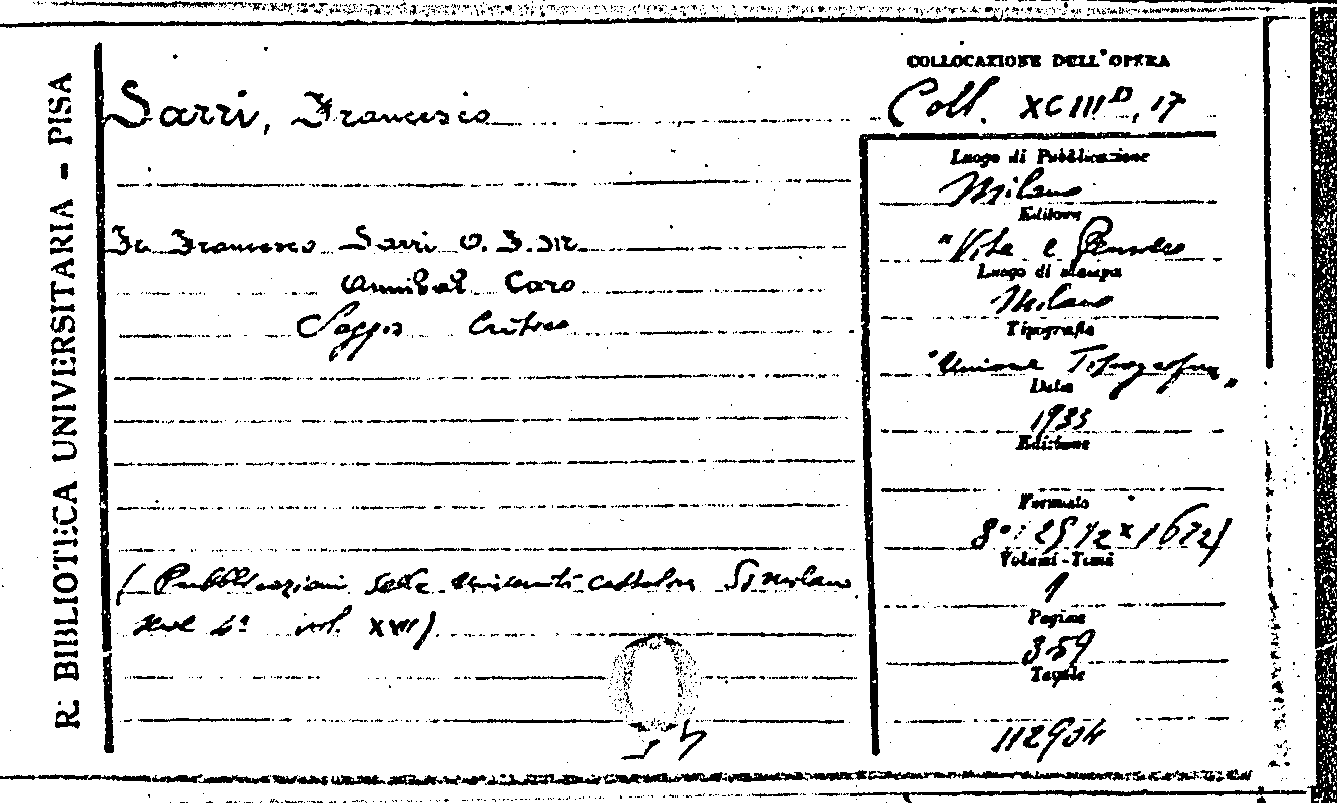 R. BIBLIOTECA UNIVERSITARIA - PISA
Sarri, Francesco
Fr. Francesco Sarri O. F. M.
Annibal Caro
Saggio Critico
(Pubblicazioni della Università Cattolica di Milano
serie 4ª vol. XVII)
COLLOCAZIONE DELL'OPERA
Coll. XCIIIᴰ, 17
Luogo di Pubblicazione
Milano
Editore
"Vita e Pensiero
Luogo di stampa
Milano
Tipografia
"Unione Tipografica"
Data
1933
Edizione
Formato
8°: 25 1/2 x 16 1/2)
Volumi - Tomi
1
Pagine
359
Tavole
112904